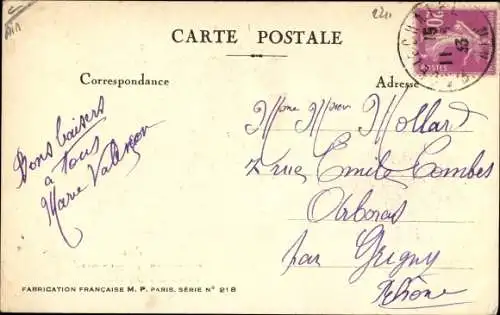 224
CARTE POSTALE
20c
POSTES
Correspondance
Adresse
Bons baisers
à tous
Marie
Mme Mollard
7 rue Emile Combes
Arboras
par Grigny
Rhône
FABRICATION FRANÇAISE M. P. PARIS, SÉRIE N° 218